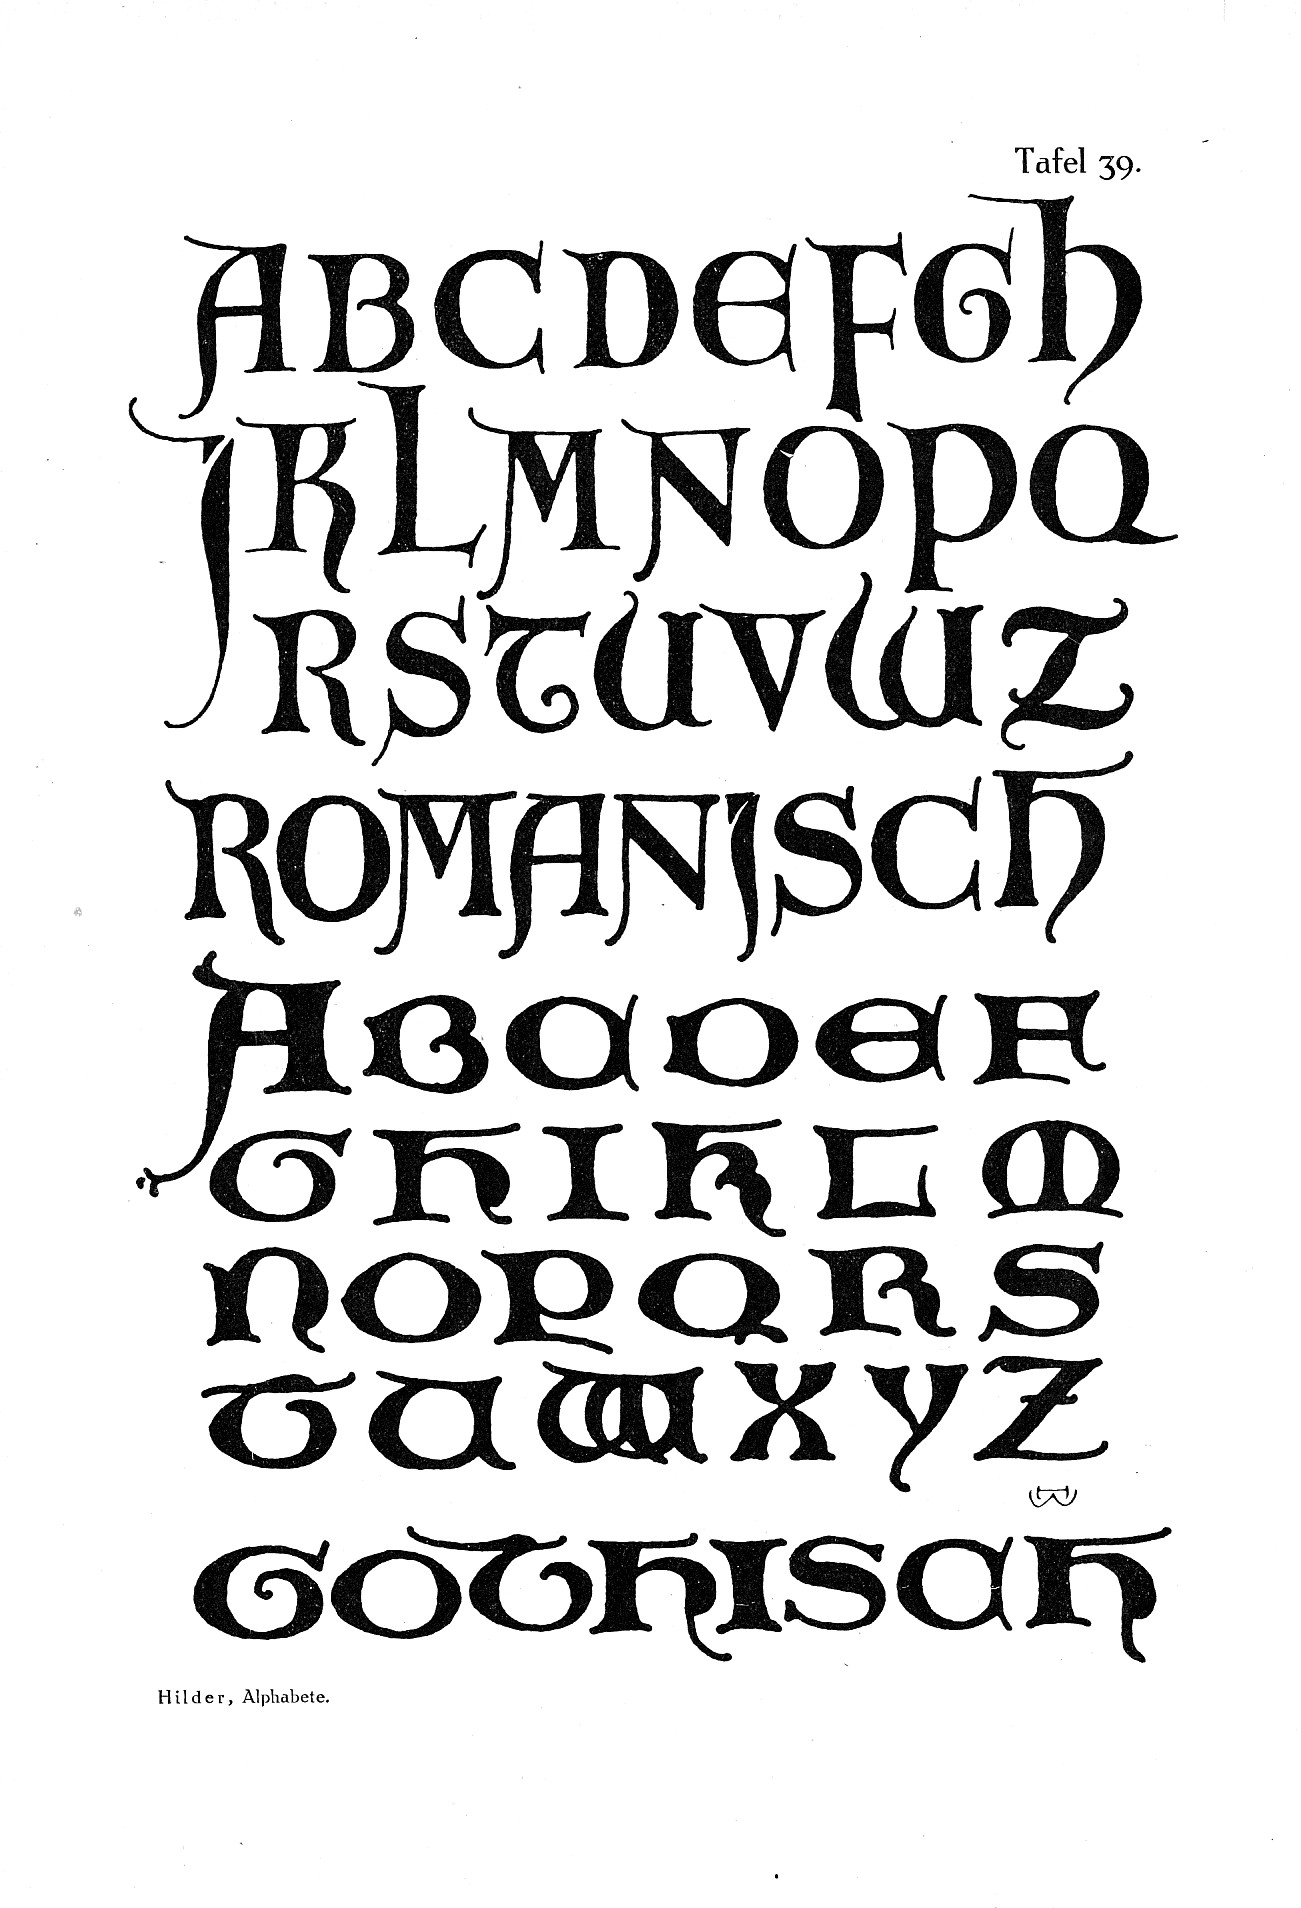 Tafel 39.
ABCDEFGh
JKLMNOPQ
RSTUVWZ
ROMANJSCh
ABCDEF
GHIKLM
NOPQRS
TUWXYZ
GOTHISCH
Hilder, Alphabete.